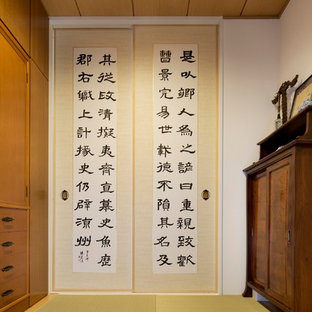 是以鄉人為之諺曰重親致歡
曹景完易世載德不隕其名及
其從政清擬夷齊直慕史魚歷
郡右職上計掾史仍辟涼州